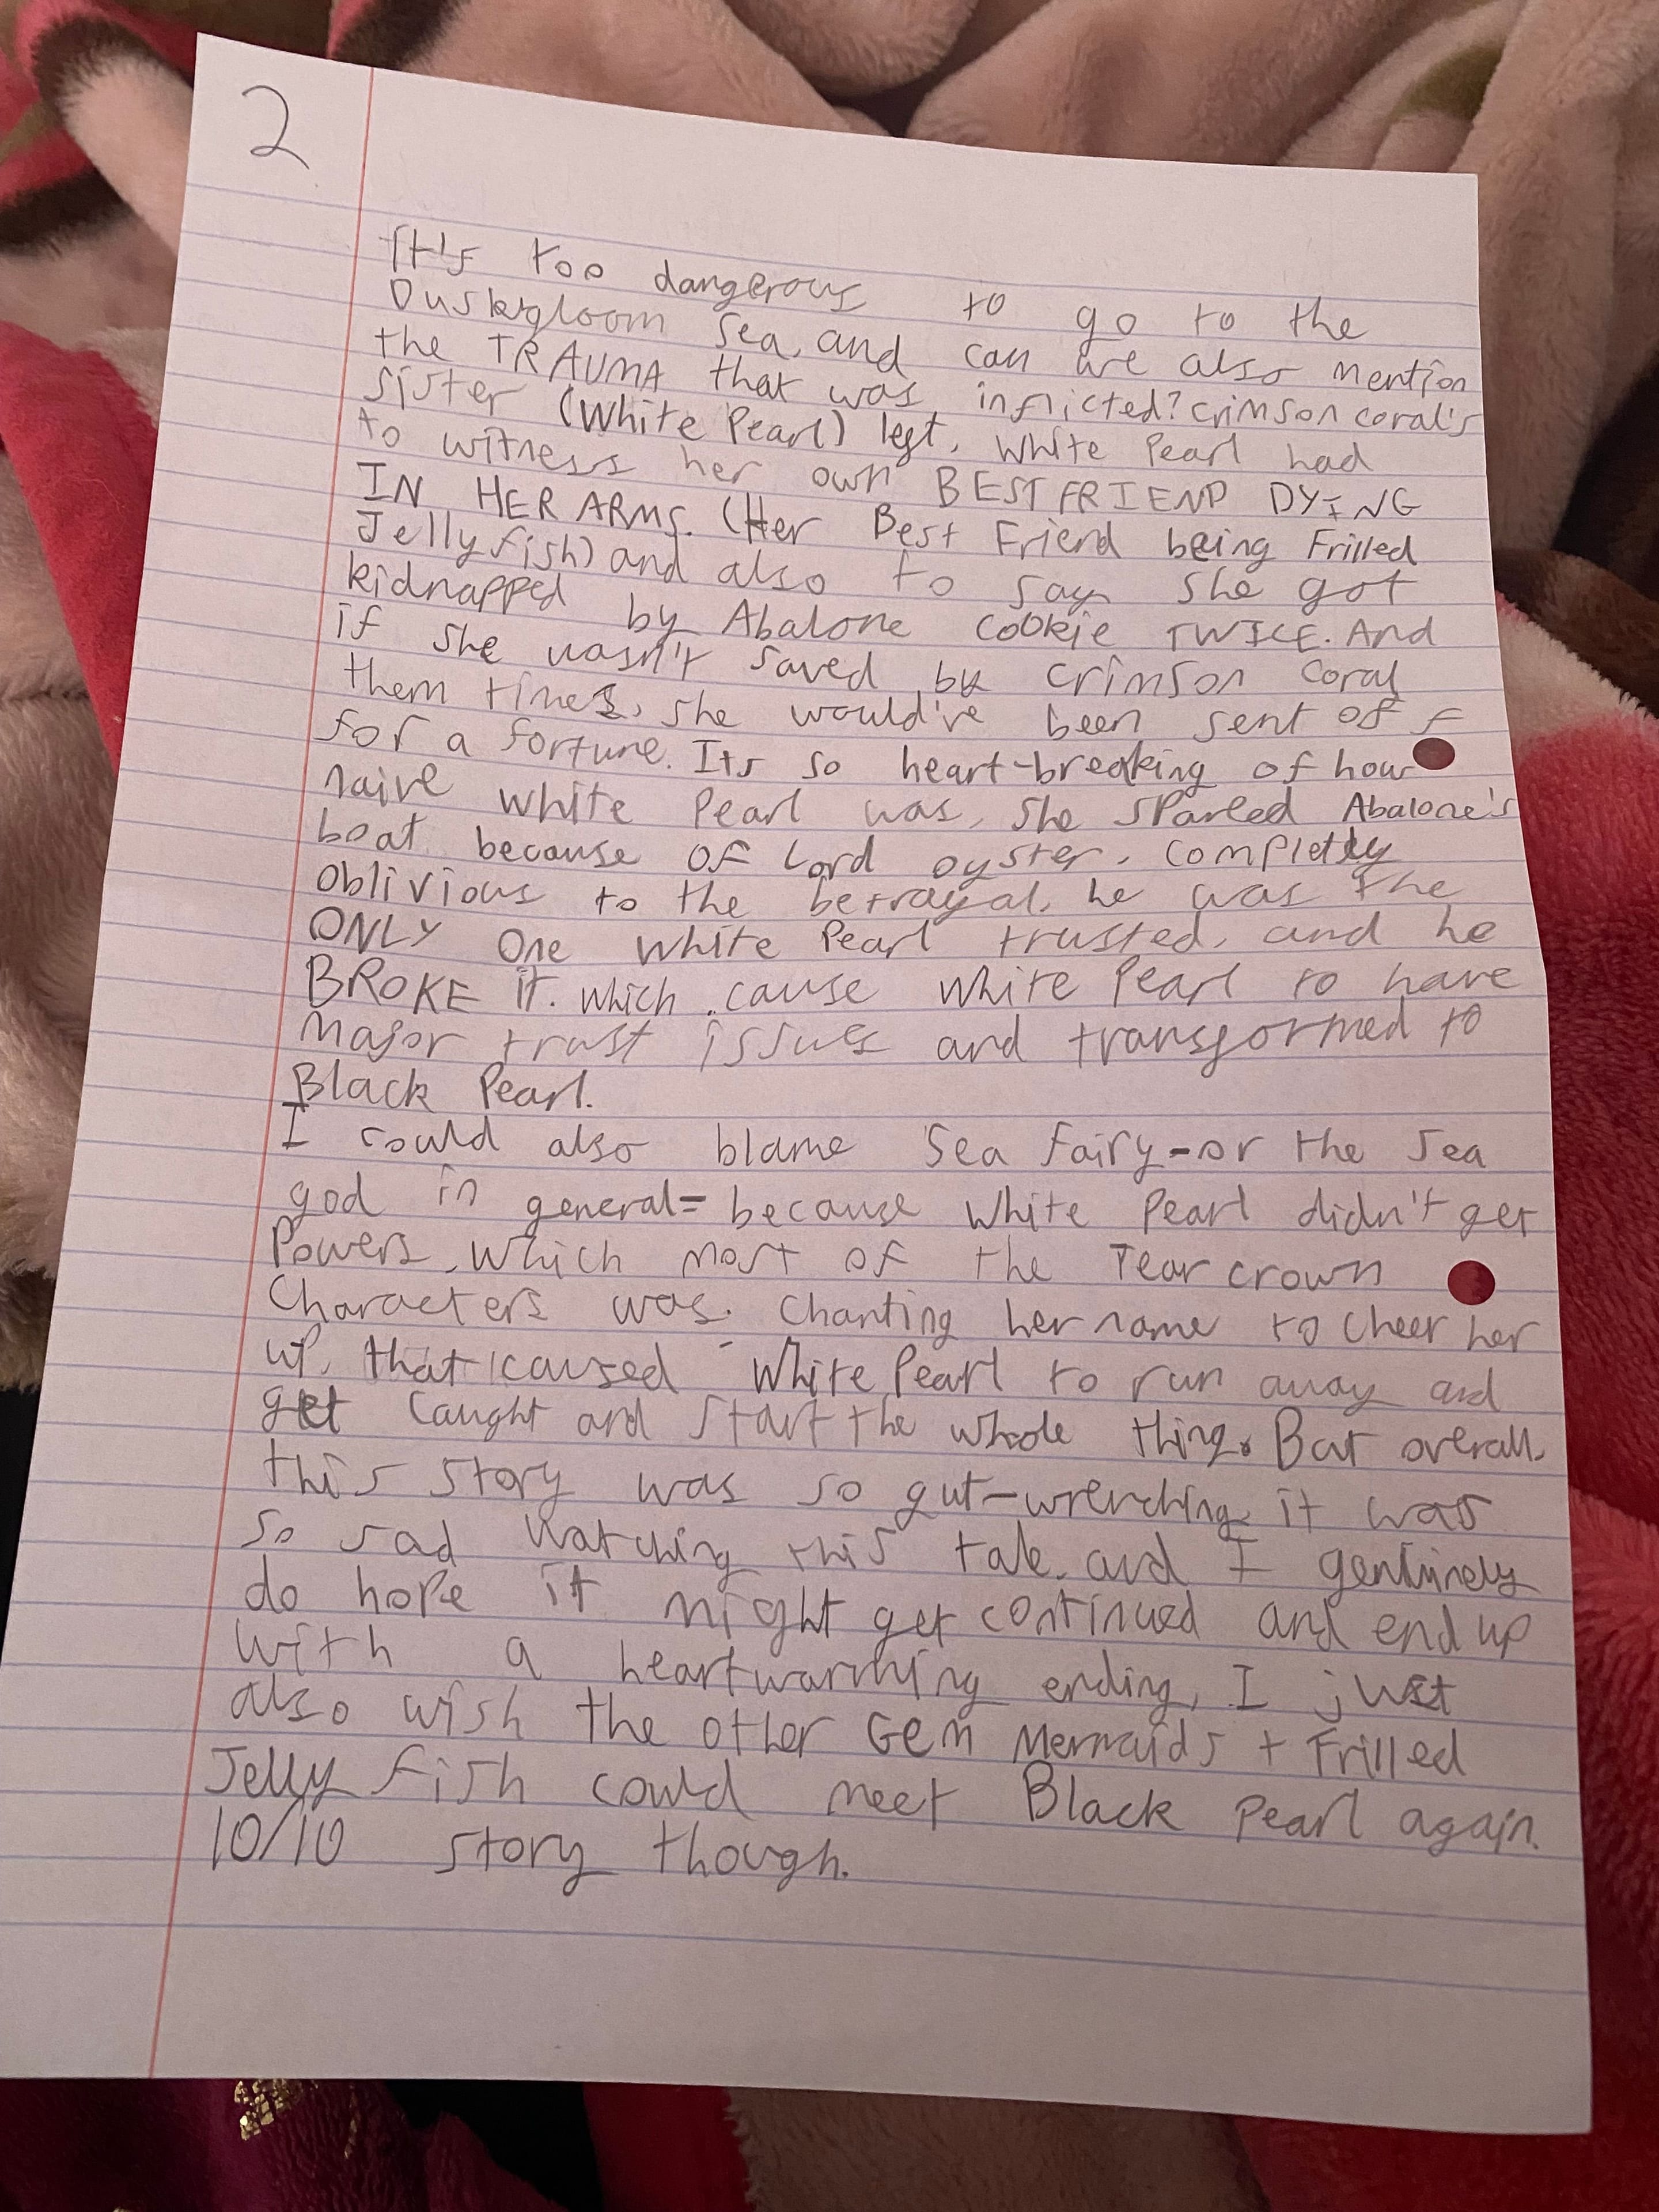 2
It's too dangerous to go to the
Duskgloom Sea, and can we also mention
the TRAUMA that was inflicted? Crimson coral's
sister (White Pearl) left, White Pearl had
to witness her own BEST FRIEND DYING
IN HER ARMS. (Her Best Friend being Frilled
Jellyfish) and also to say she got
kidnapped by Abalone cookie TWICE. And
if she wasn't saved by crimson coral
them times, she would've been sent off
for a fortune. Its so heart-breaking of how
naive white Pearl was, she sparled Abalone's
boat because of Lord oyster, completly
oblivious to the betrayal, he was the
ONLY one white Pearl trusted, and he
BROKE it. which cause white Pearl to have
major trust issues and transformed to
Black Pearl.
I could also blame Sea fairy-or the Sea
god in general- because white Pearl didn't get
Powers, which most of the Tear crown
Characters was. Chanting her name to cheer her
up, that caused White Pearl to run away and
get caught and start the whole thing. But overall,
this story was so gut-wrenching, it was
so sad watching this tale, and I genuinely
do hope it might get continued and end up
with a heartwarming ending, I just
also wish the other Gem Mermaids + Frilled
Jelly fish could meet Black Pearl again.
10/10 story though.